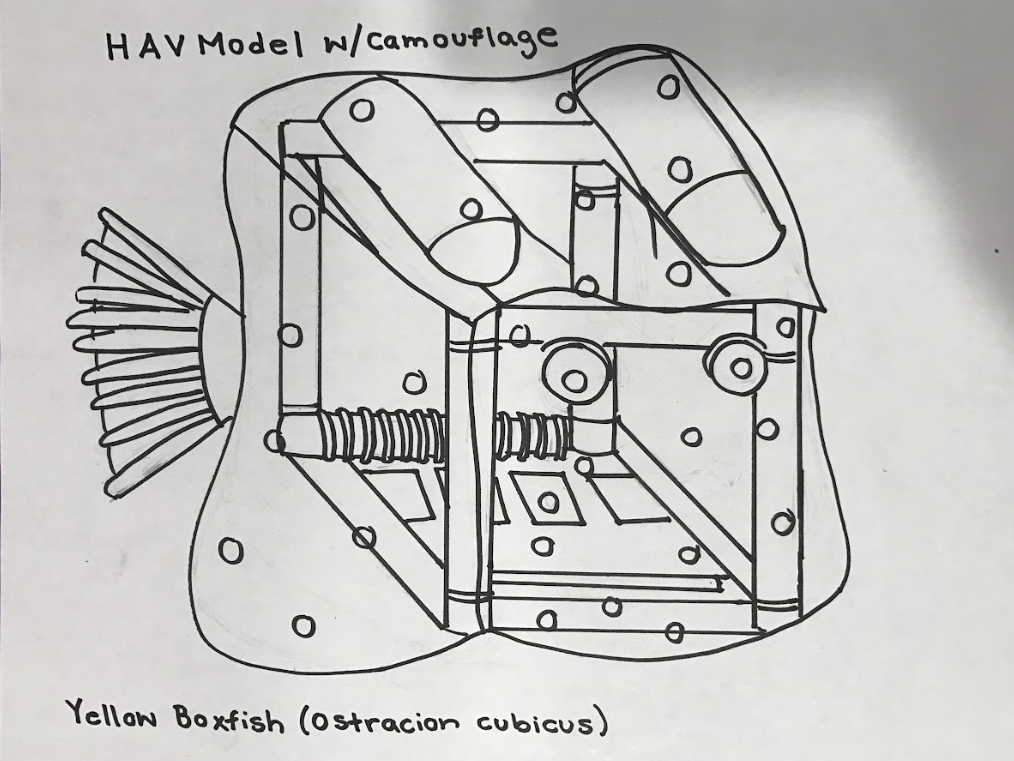 HAV Model w/camouflage
Yellow Boxfish (Ostracion cubicus)